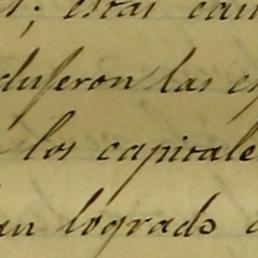 ; estas cau
dujeron las es
los capitale
an logrado